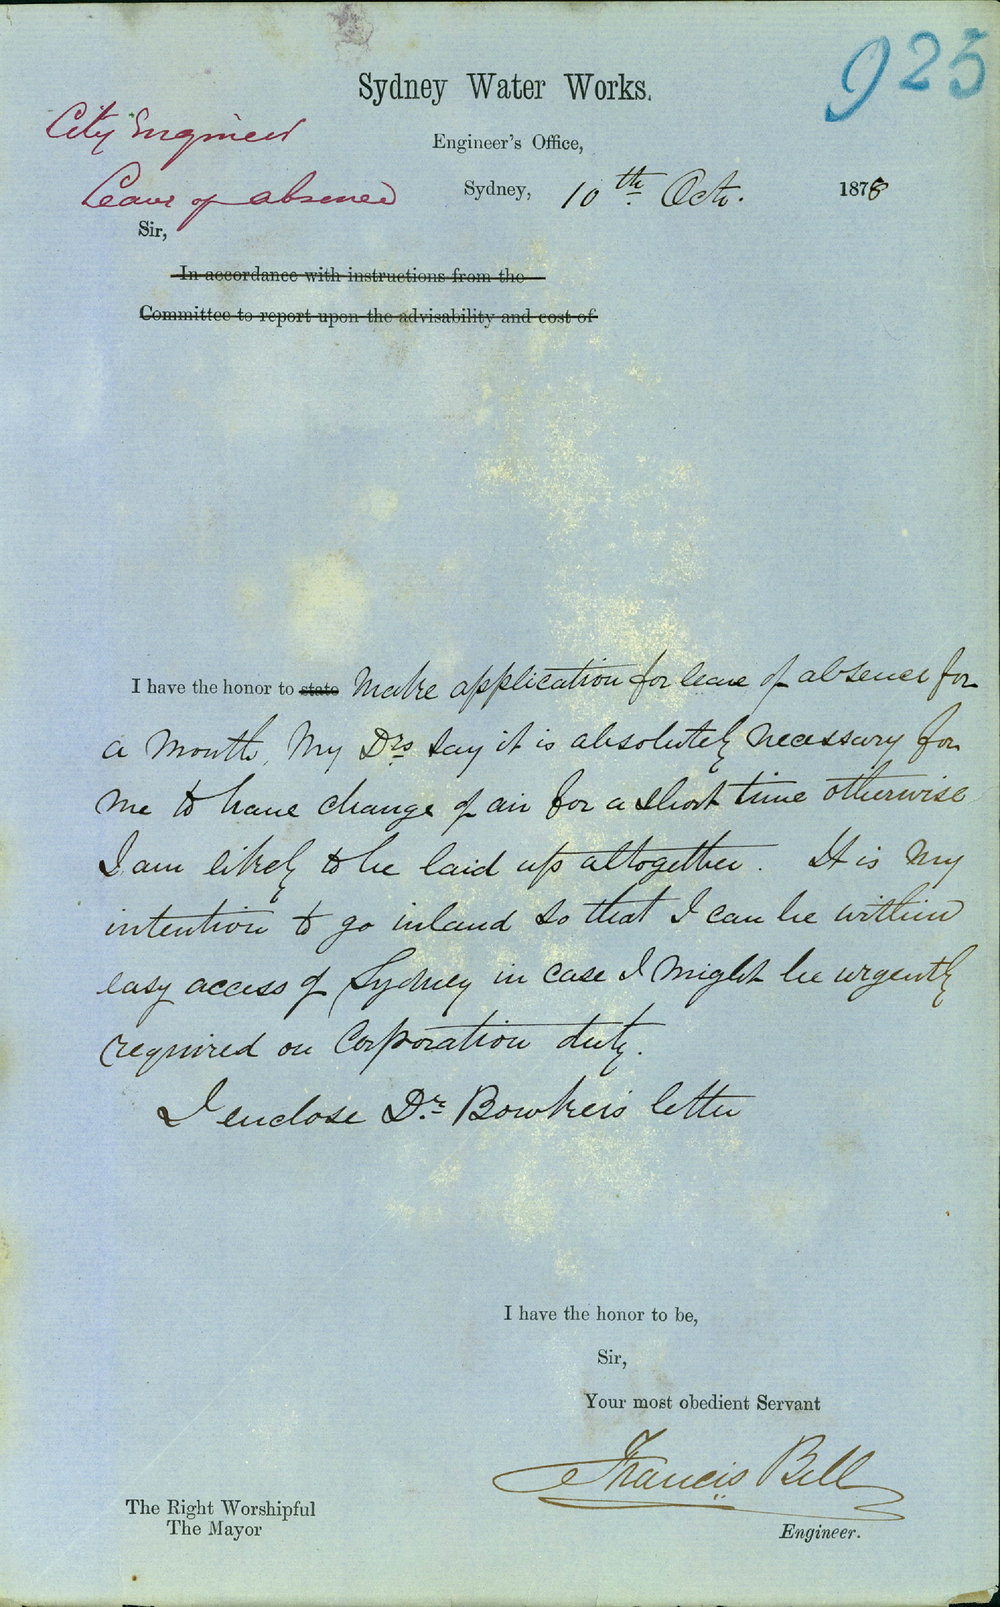 925
Sydney Water Works.
City Engineer
Engineer's Office,
Leave of absence
Sydney, 10th Oct. 1878
Sir,
In accordance with instructions from the
Committee to report upon the advisability and cost of
I have the honor to state make application for leave of absence for
a month, My Drs say it is absolutely necessary for
me to have change of air for a short time otherwise
I am likely to be laid up altogether. It is my
intention to go inland so that I can be within
easy access of Sydney in case I might be urgently
required on Corporation duty.
I enclose Dr. Bowker's letter
I have the honor to be,
Sir,
Your most obedient Servant
Francis Bell
The Right Worshipful
The Mayor
Engineer.